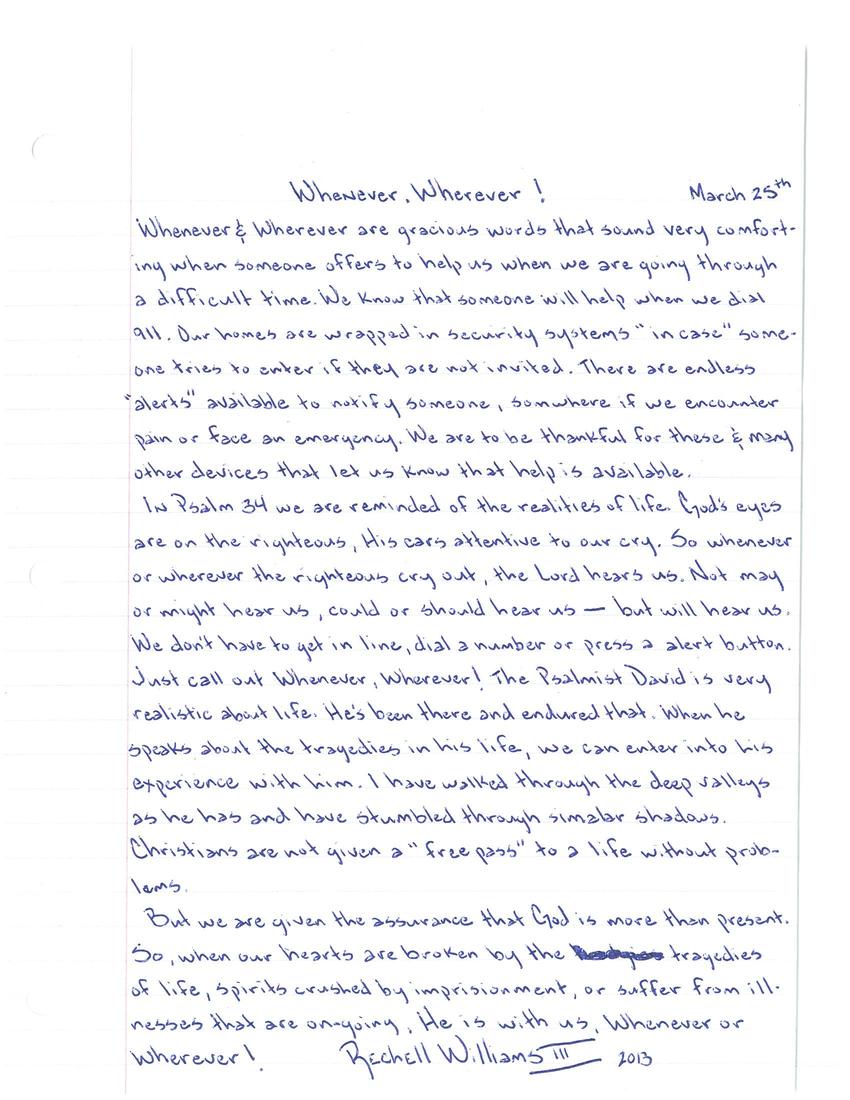 Whenever, Wherever! March 25th
Whenever & Wherever are gracious words that sound very comfort-
ing when someone offers to help us when we are going through
a difficult time. We know that someone will help when we dial
911. Our homes are wrapped in security systems "in case" some-
one tries to enter if they are not invited. There are endless
"alerts" available to notify someone, somwhere if we encounter
pain or face an emergency. We are to be thankful for these & many
other devices that let us know that help is available.
In Psalm 34 we are reminded of the realities of life. God's eyes
are on the righteous, His ears attentive to our cry. So whenever
or wherever the righteous cry out, the Lord hears us. Not may
or might hear us, could or should hear us — but will hear us.
We don't have to get in line, dial a number or press a alert button.
Just call out Whenever, Wherever! The Psalmist David is very
realistic about life. He's been there and endured that. When he
speaks about the tragedies in his life, we can enter into his
experience with him. I have walked through the deep valleys
as he has and have stumbled through simalar shadows.
Christians are not given a "free pass" to a life without prob-
lems.
But we are given the assurance that God is more than present.
So, when our hearts are broken by the tragedies
of life, spirits crushed by imprisionment, or suffer from ill-
nesses that are on-going, He is with us, Whenever or
Wherever! Rechell Williams III 2013